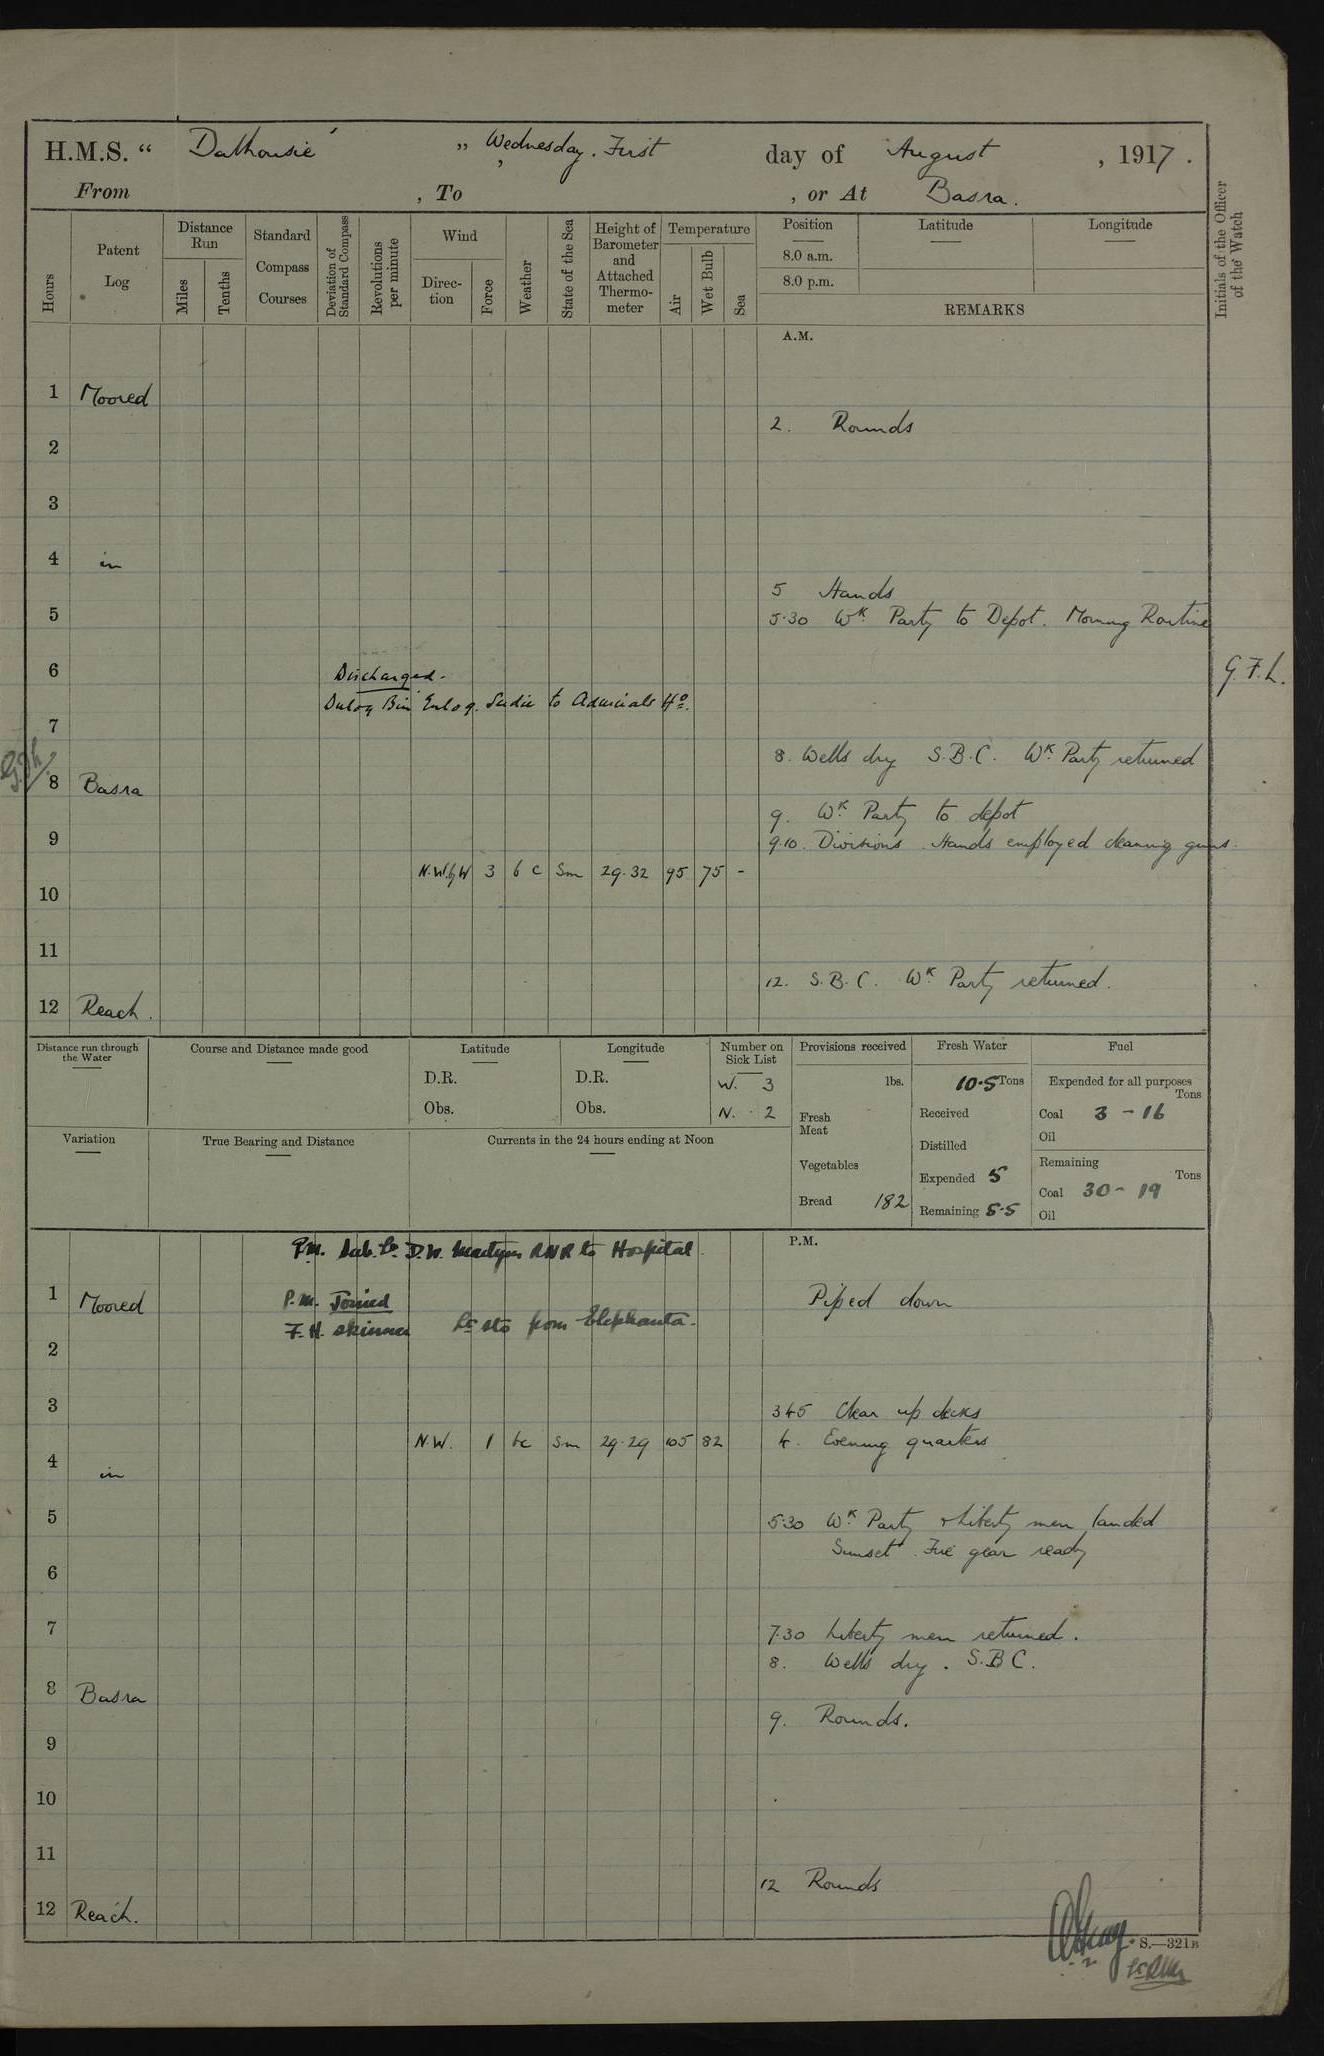 H.M.S. “ Dalhousie ” Wednesday. First day of August , 1917.
From , To , or At Basra.
Hours
Patent Log
Distance Run
Miles
Tenths
Standard Compass Courses
Deviation of Standard Compass
Revolutions per minute
Wind
Direction
Force
Weather
State of the Sea
Height of Barometer and Attached Thermometer
Temperature
Air
Wet Bulb
Sea
Position Latitude Longitude
8.0 a.m.
8.0 p.m.
REMARKS
Initials of the Officer of the Watch
A.M.
1 Moored
2. Rounds
2
3
4 in
5 Hands
5 5.30 Wk. Party to Depot. Morning Routine
6 Discharged. G.F.L.
Bin to Admirals Ho.
7
8. Wells dry S.B.C. Wk. Party returned
8 Basra
9. Wk. Party to depot
9 9.10. Divisions. Hands employed cleaning guns.
N.W.byW 3 bc Sm 29.32 95 75 -
10
11
12. S.B.C. Wk. Party returned.
12 Reach.
Distance run through the Water
Course and Distance made good
Latitude
D.R.
Obs.
Longitude
D.R.
Obs.
Number on Sick List
W. 3
N. 2
Variation
True Bearing and Distance
Currents in the 24 hours ending at Noon
Provisions received
lbs.
Fresh Meat
Vegetables
Bread 182
Fresh Water
10.5 Tons
Received
Distilled
Expended 5
Remaining 5.5
Fuel
Expended for all purposes
Tons
Coal 3 - 16
Oil
Remaining
Tons
Coal 30 - 19
Oil
P.M.
P.M. Sub. Lt. D.W. Martyn RNR to Hospital.
1 Moored P.M. Joined Piped down
F.H. Skinner Lg Sto from Elephanta.
2
3 3.45 Clear up decks
N.W. 1 bc Sm 29.29 105 82 4. Evening quarters
4 in
5 5.30 Wk. Party & Liberty men landed
Sunset. Fire gear ready
6
7 7.30 Liberty men returned.
8. Wells dry. S.B.C.
8 Basra
9. Rounds.
9
10
11
12 Rounds
12 Reach.
S.—321B